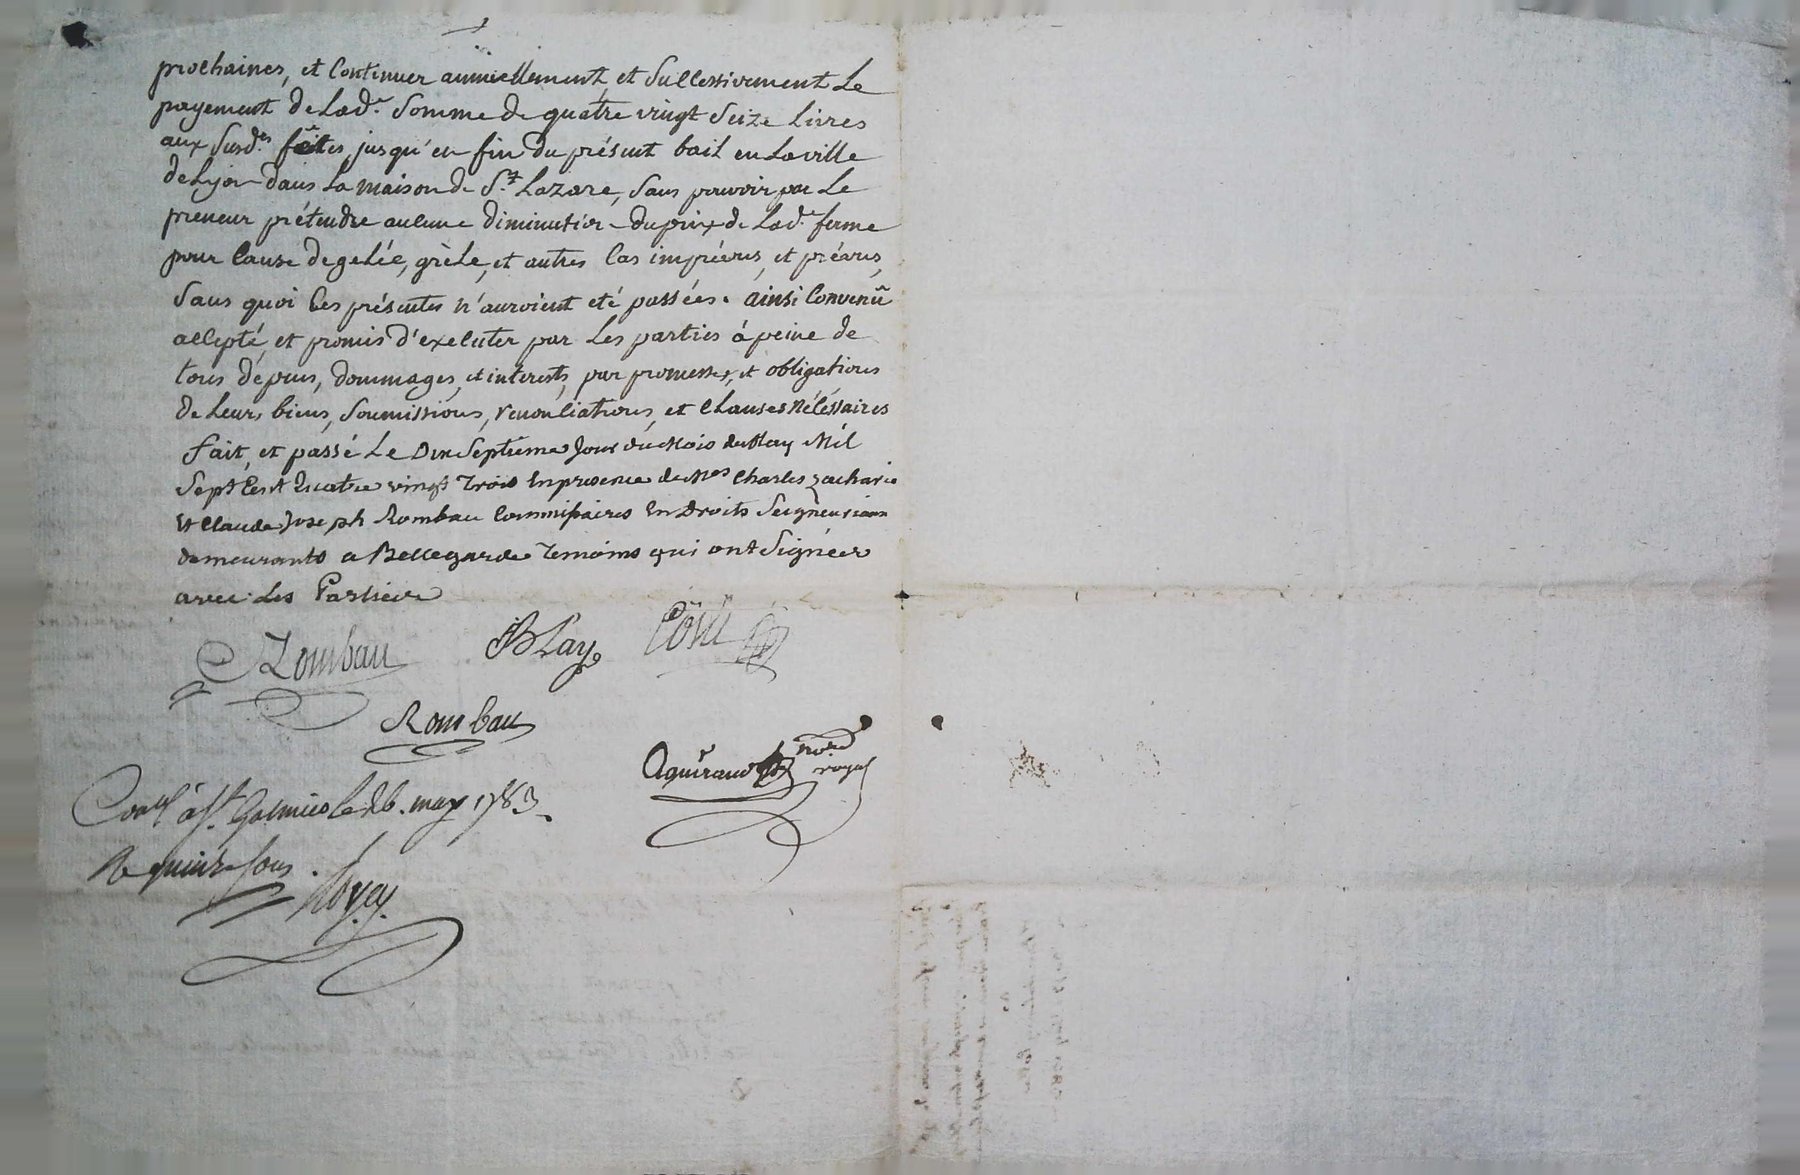 prochaines, et Continuer annüellement, et Successivement Le
payement de Lad.e Somme de quatre vingt Seize Livres
aux Susd.es fêtes jusqu'en fin du présent bail en La ville
de Lyon dans La maison de S.t Lazare, Sans pouvoir par Le
preneur prétendre aucune diminution du prix de Lad.e ferme
pour Cause de gelée, grèle, et autres Cas imprévus, et prévus,
Sans quoi Ces présentes n'auroient eté passées. ainsi Convenû
accepté, et promis d'executer par Les parties à peine de
tous dépens, dommages, et interests, par promesses, et obligations
de Leurs biens, Soumissions, renonciations, et Clauses Nécéssaires
fait, et passé Le Dix Septieme Jour du Mois de May Mil
Sept Cent Quatre vingt Trois En presence de M.es Charles Zacharie
Et Claude Joseph Rombau Commissaires En Droits Seigneuriaux
demeurants a Bellegarde Temoins qui ont Signéer
avec Les Parties
Rombau BLay
Rombau
Aguiraud no.re royal
Con.lé à S.t Galmier le 26. may 1783.
R quinze sous.